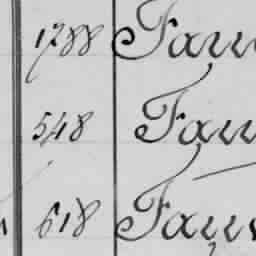 1788 Fau
548 Fau
618 Fau